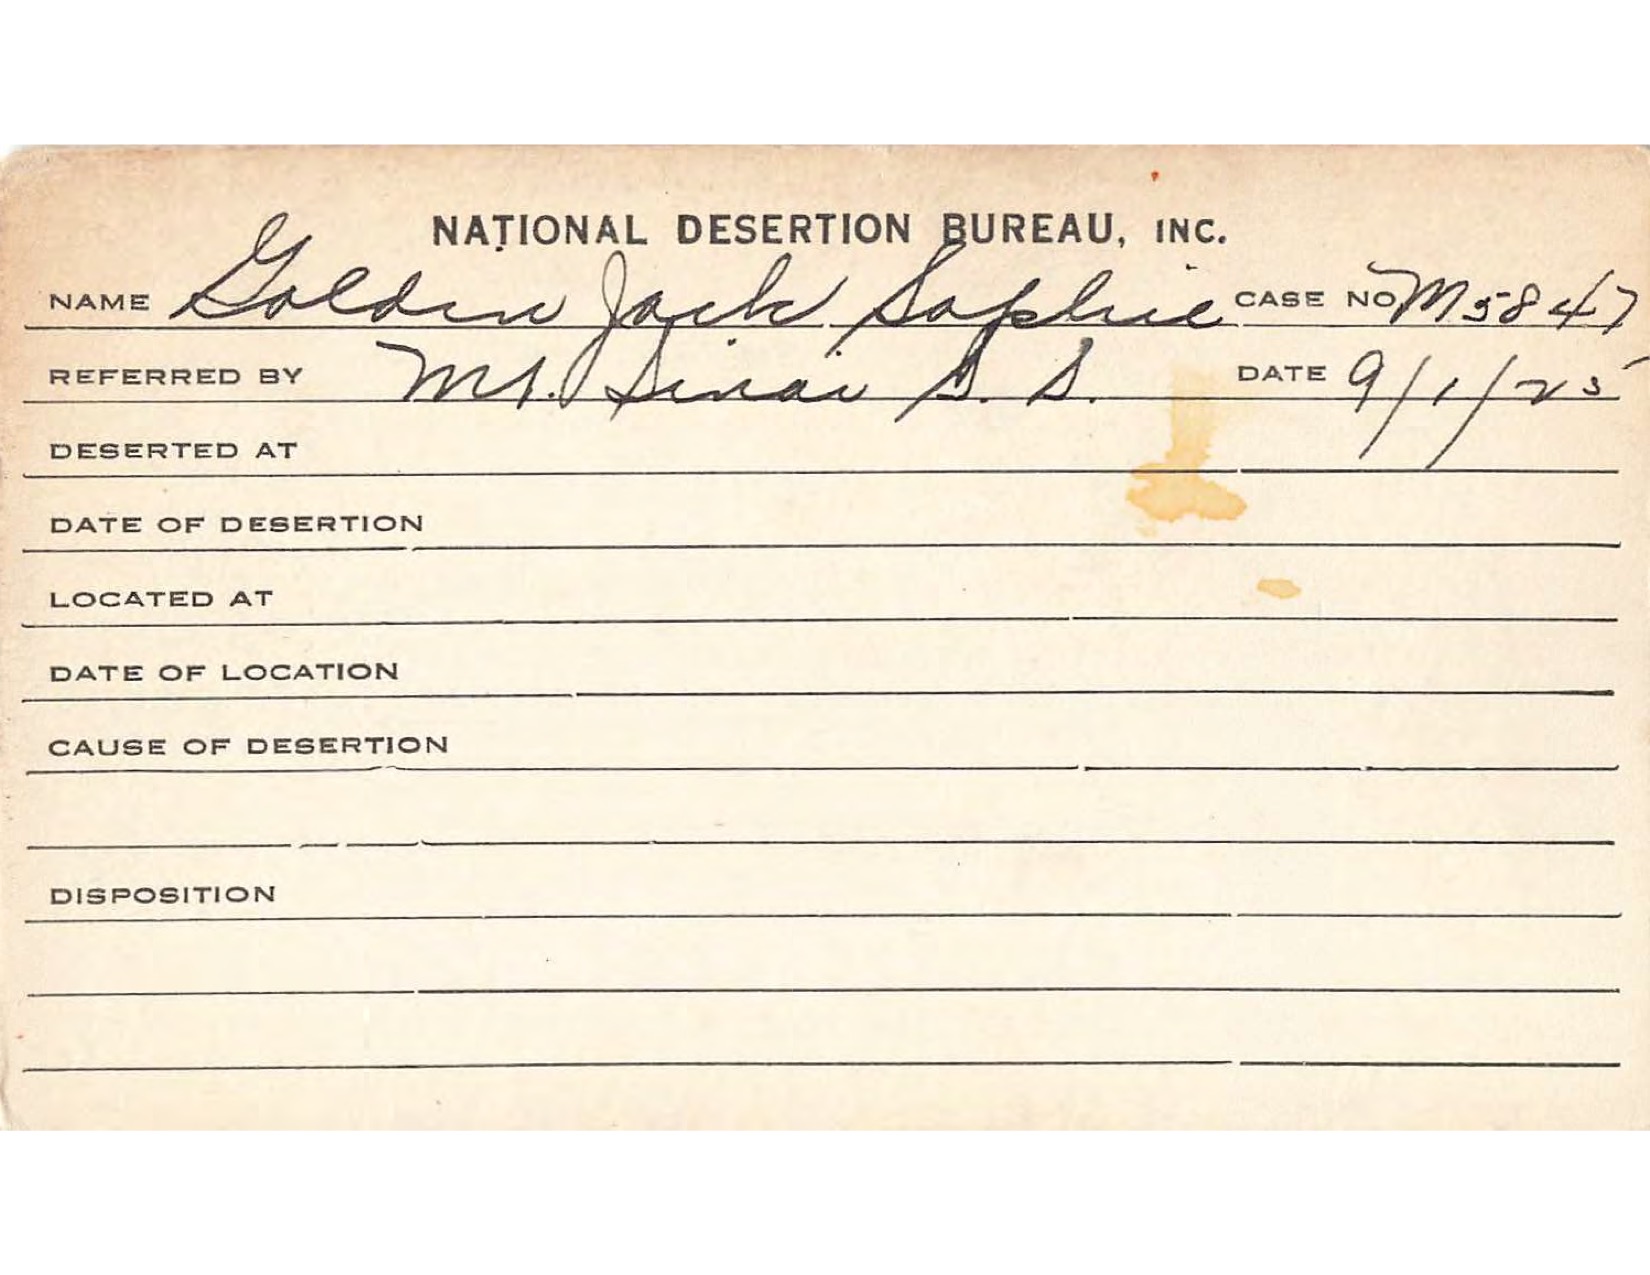 NATIONAL DESERTION BUREAU, INC.
NAME Golden Jack Sophie CASE NO. M5847
REFERRED BY Mt. Sinai S. S. DATE 9/1/25
DESERTED AT
DATE OF DESERTION
LOCATED AT
DATE OF LOCATION
CAUSE OF DESERTION
DISPOSITION